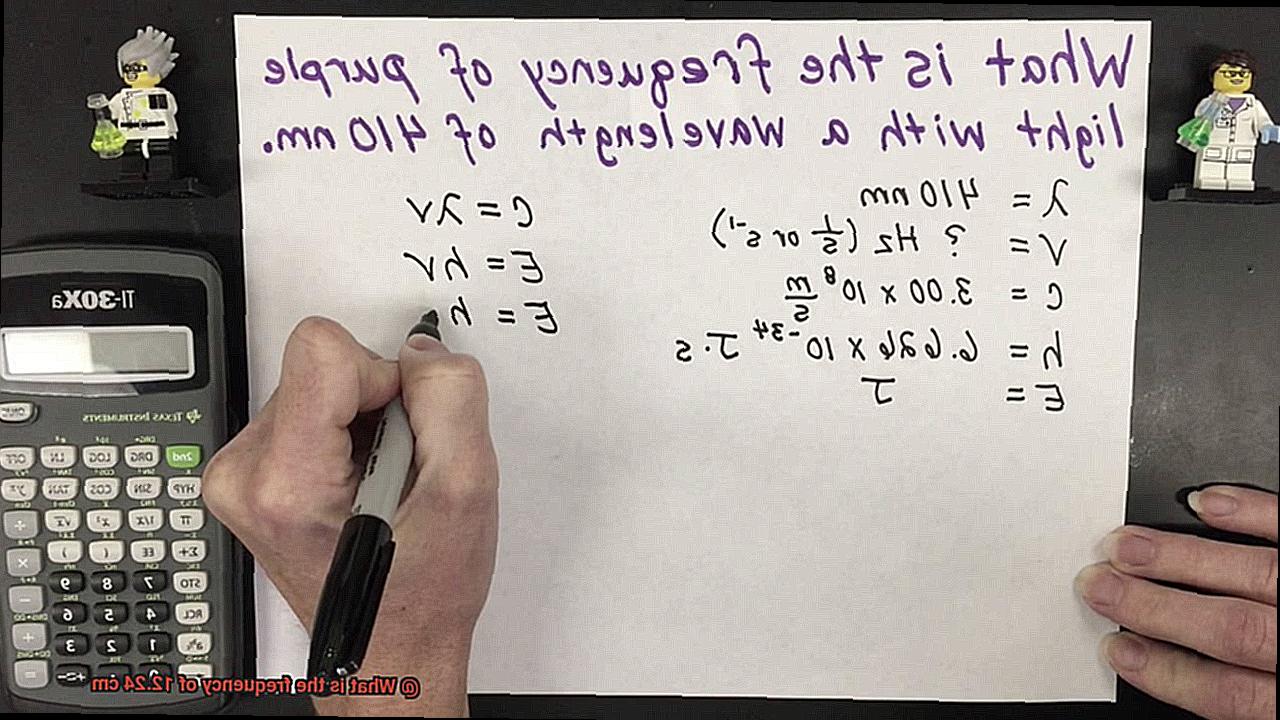 What is the frequency of purple
light with a wavelength of 410 nm.
λ = 410 nm
ν = ? Hz (1/s or s⁻¹)
c = 3.00 x 10⁸ m/s
h = 6.626 x 10⁻³⁴ J·s
E = J
c = λν
E = hν
E = h
TI-30Xa
TEXAS INSTRUMENTS
2nd DRG LOG LN OFF
HYP SIN COS TAN yˣ
π 1/x x² √x ÷
Σ+ EE ( ) ×
STO 7 8 9 −
RCL 4 5 6 +
aᵇ/c 1 2 3 =
@ What is the frequency of 12.24 cm